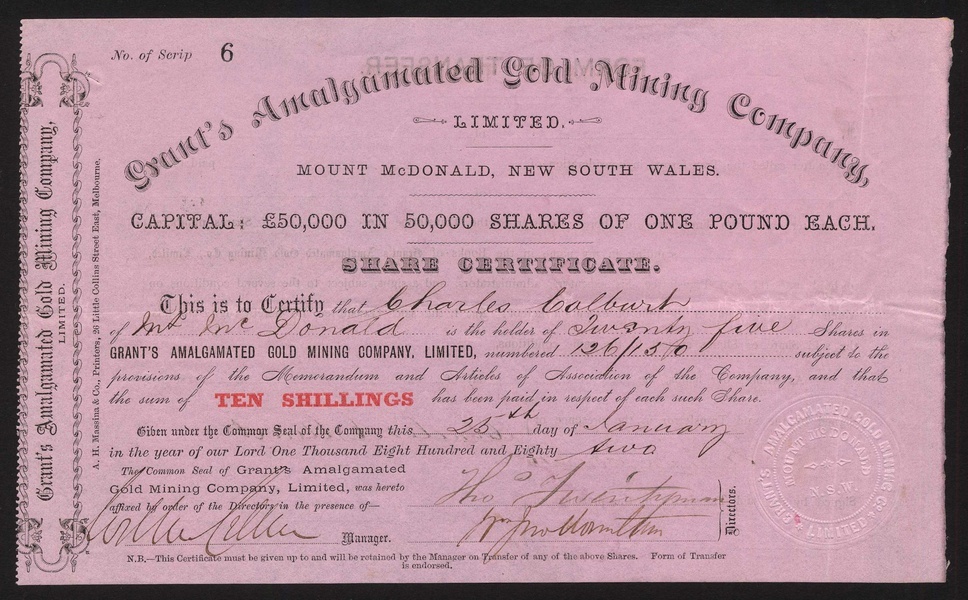 No. of Scrip 6
Grant's Amalgamated Gold Mining Company,
LIMITED.
MOUNT McDONALD, NEW SOUTH WALES.
CAPITAL: £50,000 IN 50,000 SHARES OF ONE POUND EACH.
SHARE CERTIFICATE.
This is to Certify that Charles Colburt
of Mt Mc Donald is the holder of Twenty five Shares in
GRANT'S AMALGAMATED GOLD MINING COMPANY, LIMITED, numbered 126/150 subject to the
provisions of the Memorandum and Articles of Association of the Company, and that
the sum of TEN SHILLINGS has been paid in respect of each such Share.
Given under the Common Seal of the Company this 25th day of January
in the year of our Lord One Thousand Eight Hundred and Eighty two
The Common Seal of Grant's Amalgamated
Gold Mining Company, Limited, was hereto
affixed by order of the Directors in the presence of—
Manager.
Thos Twentyman
Directors.
N.B.—This Certificate must be given up to and will be retained by the Manager on Transfer of any of the above Shares. Form of Transfer
is endorsed.
Grant's Amalgamated Gold Mining Company,
LIMITED.
A. H. Massina & Co., Printers, 26 Little Collins Street East, Melbourne.
GRANT'S AMALGAMATED GOLD MINING CO. LIMITED
MOUNT McDONALD
N.S.W.